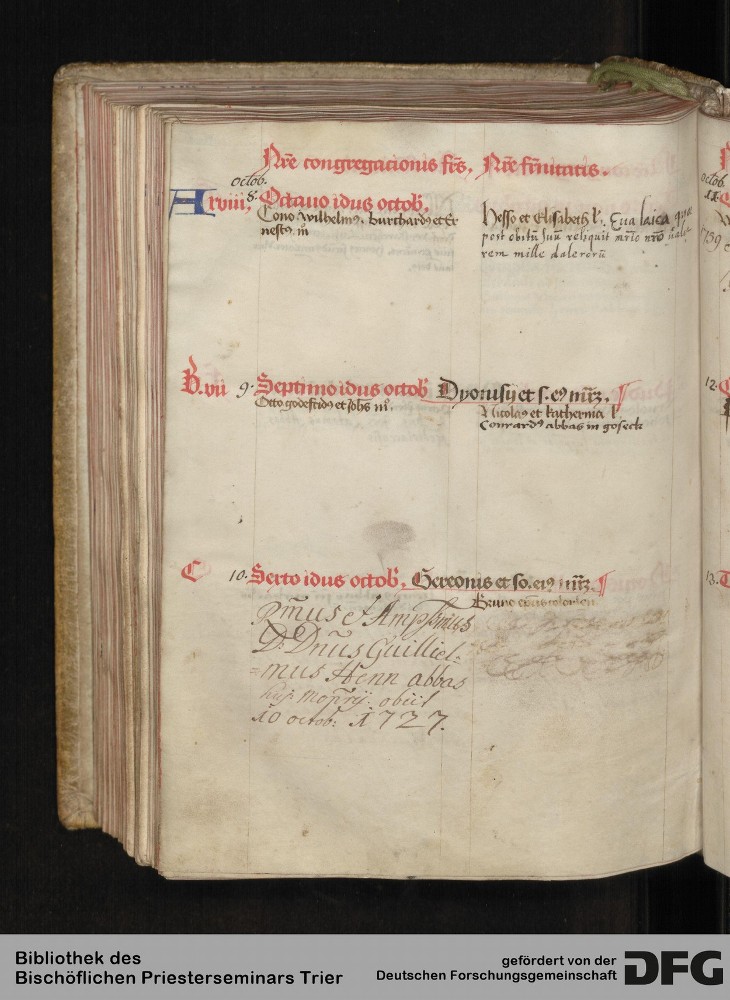 Nr̄e congregacionis frīs. Nr̄e fr̄nitatis.
octob.
A xviii, 8. Octauo idus octob.
Cono Wilhelmꝰ. burchardꝰ et Er
nestꝰ. m̄
Hesso et Elisabeth l. Eua laica quæ
post obitū suū reliquit mr̄io nr̄o
rem mille dalerorū
B. vii 9. Septimo idus octob Dyonisij et s. eꝰ mr̄ꝝ.
Otto godefridꝰ et Johēs m̄.
Nicolaꝰ et Katherina l
Conrardꝰ abbas in goseck
C 10. Sexto idus octob. Gereonis et so. eiꝰ mr̄ꝝ.
Rm̄us et Amplssimus
Ds Dn̄us Guilliel=
=mus Henn abbas
huj. mon̄rij. obiit
10 octob: 1727.
Bibliothek des
Bischöflichen Priesterseminars Trier
gefördert von der
Deutschen Forschungsgemeinschaft DFG